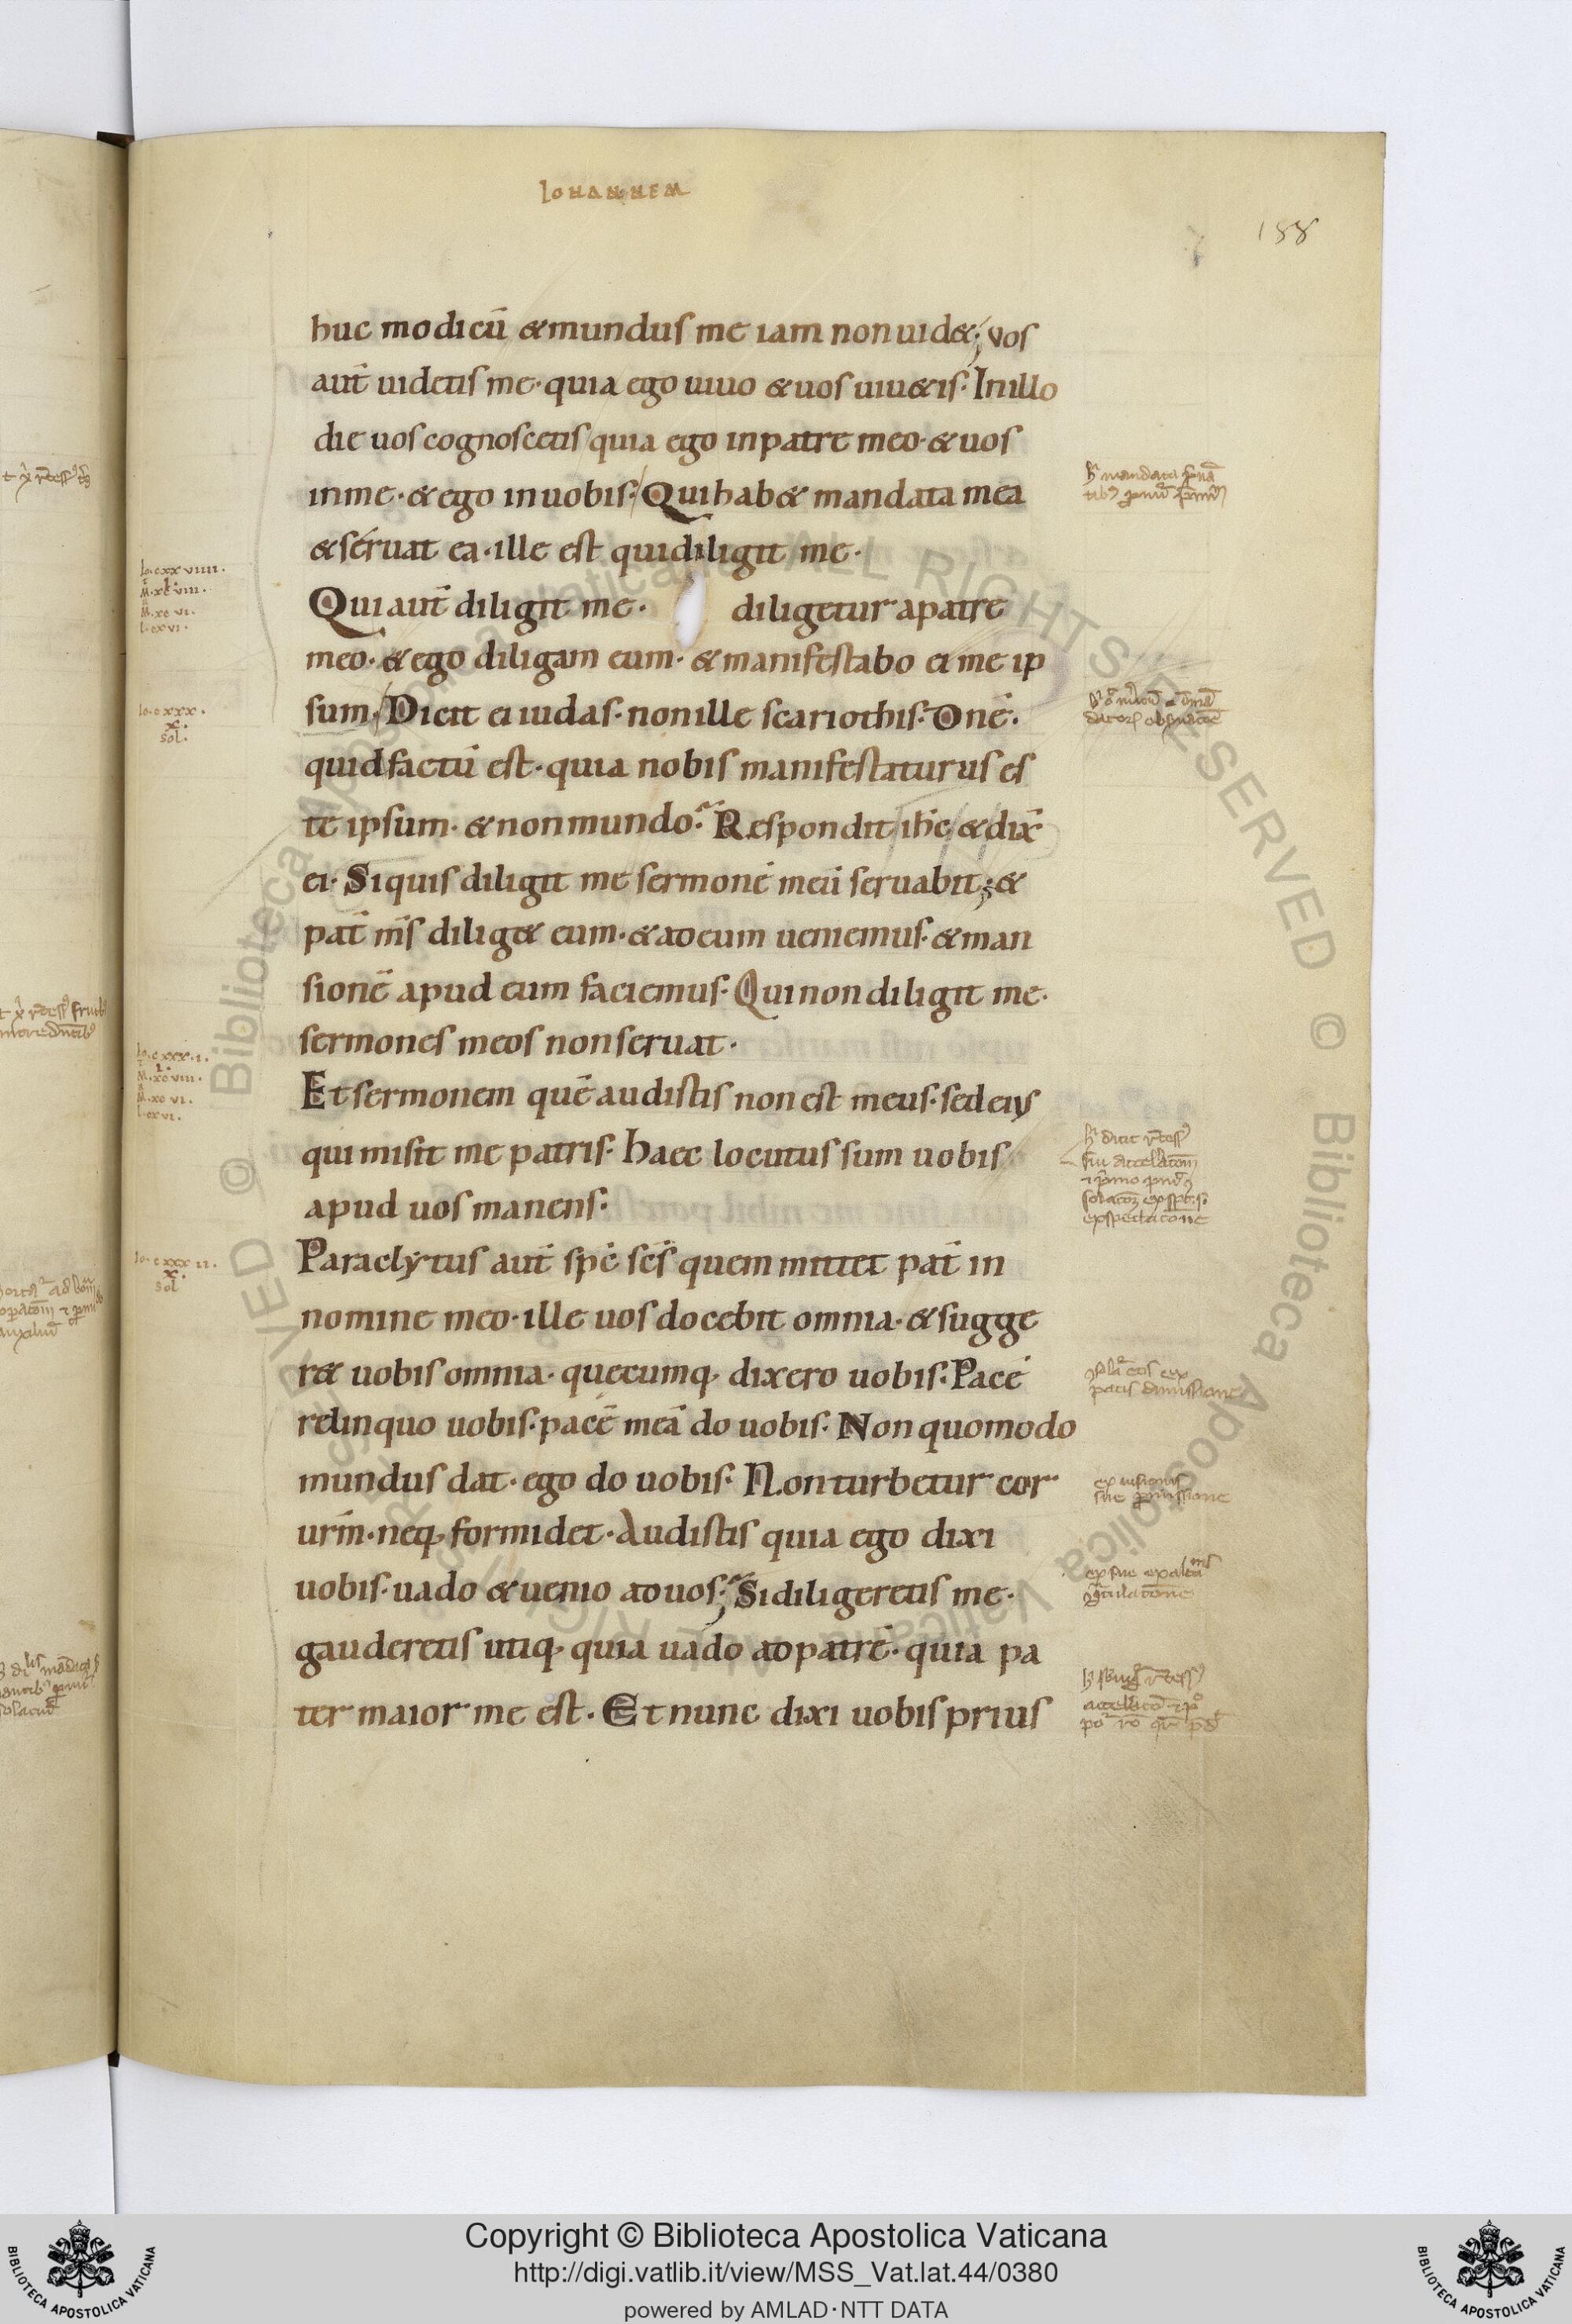 IOHANNEM
188
huc modicū & mundus me iam non uid&; vos
aut̄ uidetis me· quia ego uiuo & uos uiu&is· In illo
die uos cognoscetis quia ego in patre meo· & uos
in me· & ego in uobis· Qui hab& mandata mea
& seruat ea· ille est qui diligit me·
Io· cxxviiii·
M· xcviii·
M· xcvi·
L· cxvi·
Qui aut̄ diligit me· diligetur a patre
meo· & ego diligam eum· & manifestabo ei me ip
Io· cxxx·
x·
sol·
sum· Dicit ei iudas· non ille scariothis· Dnē·
quid factū est· quia nobis manifestaturus es
te ipsum· & non mundo· Respondit ihc̄ & dix̄
ei· Si quis diligit me sermonē meū seruabit; &
pat̄ ms̄ dilig& eum· & ad eum ueniemus· & man
sionē apud eum faciemus· Qui non diligit me·
sermones meos non seruat·
Io· cxxx·i·
M· xcviii·
M· xcvi·
L· cxvi·
Et sermonem quē audistis non est meus· sed eius
qui misit me patris· haec locutus sum uobis
apud uos manens·
Io· cxxxii·
x·
sol
Paraclytus aut̄ spc̄ scs̄ quem mittet pat̄ in
nomine meo· ille uos docebit omnia· & sugge
r& uobis omnia· quecumq; dixero uobis· Pacē
relinquo uobis· pacē meā do uobis· Non quomodo
mundus dat· ego do uobis· Non turbetur cor
urm̄· neq; formidet· Audistis quia ego dixi
uobis· uado & uenio ad uos; Si diligeretis me·
gauderetis utiq; quia uado ad patrē· quia pa
ter maior me est· Et nunc dixi uobis prius
© Biblioteca Apostolica Vaticana ALL RIGHTS RESERVED
Copyright © Biblioteca Apostolica Vaticana
http://digi.vatlib.it/view/MSS_Vat.lat.44/0380
powered by AMLAD·NTT DATA
BIBLIOTECA APOSTOLICA VATICANA
BIBLIOTECA APOSTOLICA VATICANA